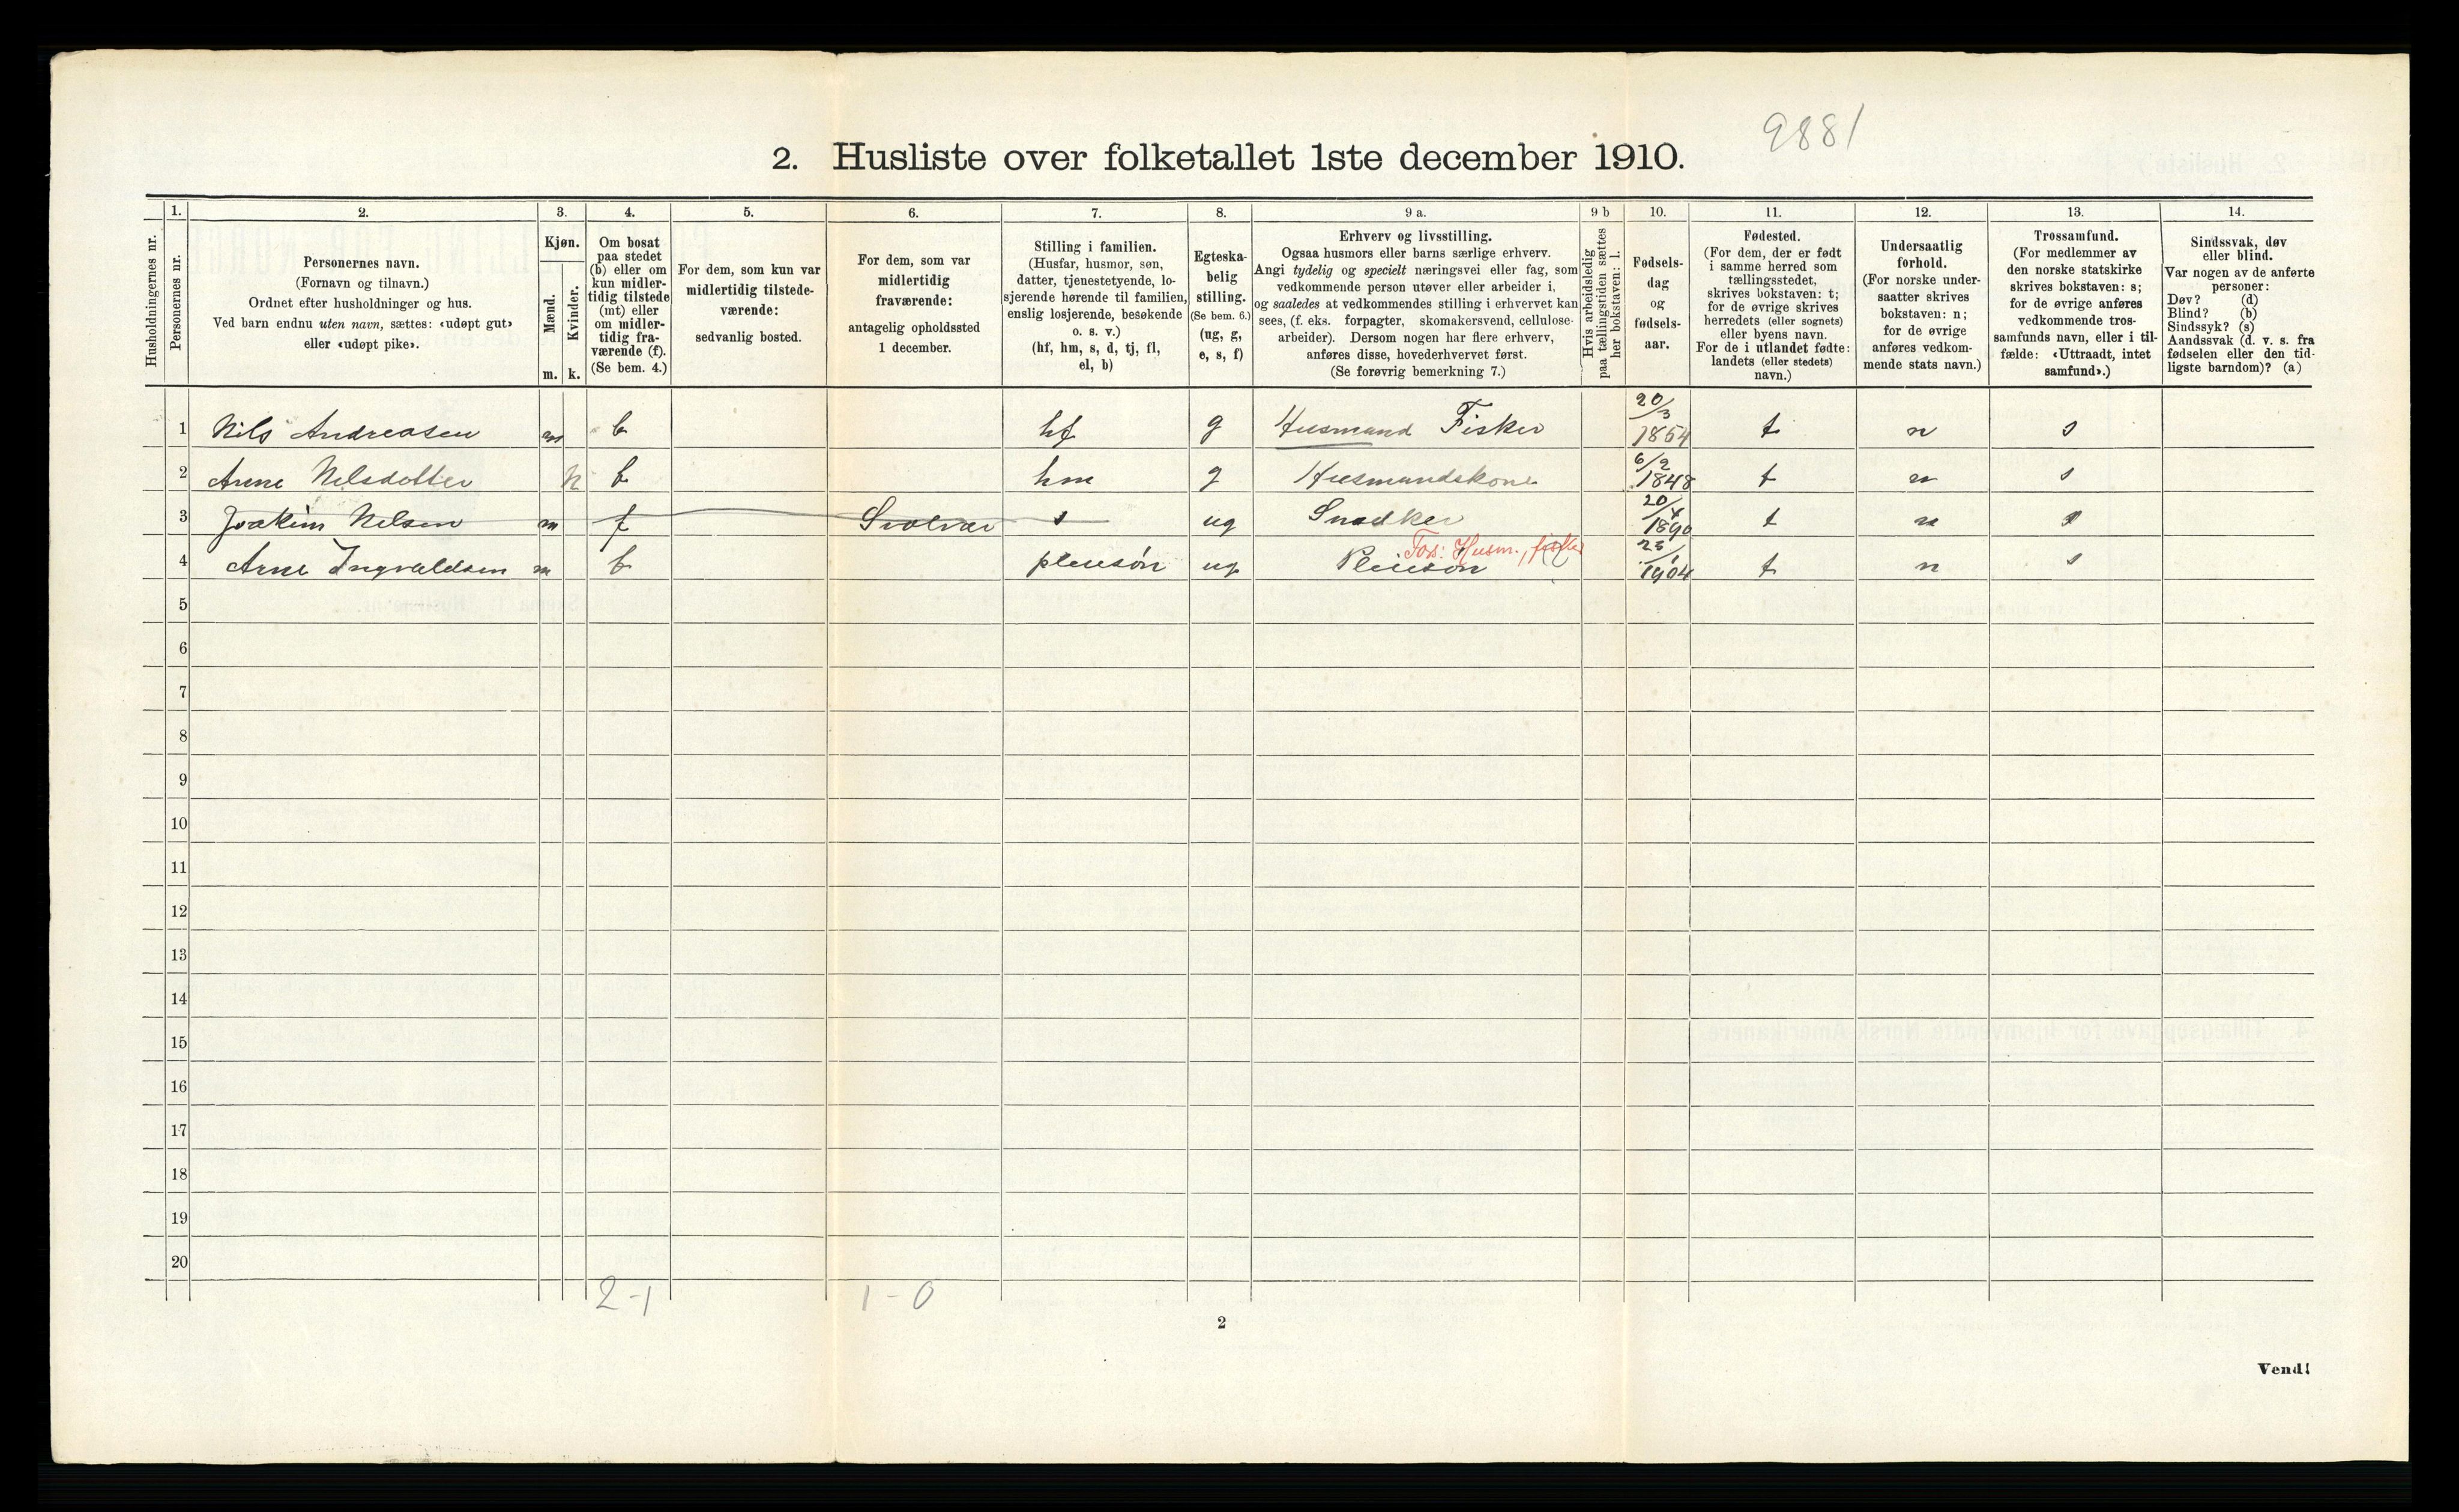 9881
2. Husliste over folketallet 1ste december 1910.
Husholdningernes nr.
1.
Personernes nr.
2.
Personernes navn.
(Fornavn og tilnavn.)
Ordnet efter husholdninger og hus.
Ved barn endnu uten navn, sættes: «udøpt gut»
eller «udøpt pike».
3.
Kjøn.
Mænd.
Kvinder.
m. k.
4.
Om bosat
paa stedet
(b) eller om
kun midler-
tidig tilstede
(mt) eller
om midler-
tidig fra-
værende (f).
(Se bem. 4.)
5.
For dem, som kun var
midlertidig tilstede-
værende:
sedvanlig bosted.
6.
For dem, som var
midlertidig
fraværende:
antagelig opholdssted
1 december.
7.
Stilling i familien.
(Husfar, husmor, søn,
datter, tjenestetyende, lo-
sjerende hørende til familien,
enslig losjerende, besøkende
o. s. v.)
(hf, hm, s, d, tj, fl,
el, b)
8.
Egteska-
belig
stilling.
(Se bem. 6.)
(ug, g,
e, s, f)
9 a.
Erhverv og livsstilling.
Ogsaa husmors eller barns særlige erhverv.
Angi tydelig og specielt næringsvei eller fag, som
vedkommende person utøver eller arbeider i,
og saaledes at vedkommendes stilling i erhvervet kan
sees, (f. eks. forpagter, skomakersvend, cellulose-
arbeider). Dersom nogen har flere erhverv,
anføres disse, hovederhvervet først.
(Se forøvrig bemerkning 7.)
9 b
Hvis arbeidsledig
paa tællingstiden sættes
her bokstaven: l.
10.
Fødsels-
dag
og
fødsels-
aar.
11.
Fødested.
(For dem, der er født
i samme herred som
tællingsstedet,
skrives bokstaven: t;
for de øvrige skrives
herredets (eller sognets)
eller byens navn.
For de i utlandet fødte:
landets (eller stedets)
navn.)
12.
Undersaatlig
forhold.
(For norske under-
saatter skrives
bokstaven: n;
for de øvrige
anføres vedkom-
mende stats navn.)
13.
Trossamfund.
(For medlemmer av
den norske statskirke
skrives bokstaven: s;
for de øvrige anføres
vedkommende tros-
samfunds navn, eller i til-
fælde: «Uttraadt, intet
samfund».)
14.
Sindssvak, døv
eller blind.
Var nogen av de anførte
personer:
Døv? (d)
Blind? (b)
Sindssyk? (s)
Aandssvak (d. v. s. fra
fødselen eller den tid-
ligste barndom)? (a)
1 Nils Andreasen m b hf g Husmand Fisker 20/3 1854 t n s
2 Arene Nelsdotter k b hm g Husmandskone 6/2 1848 t n s
3 Joakim Nelsen m f Svolvær s ug Snedker 20/4 1890 t n s
Fors: Husm., fisker
4 Arne Ingvaldsen m b pleiesøn ug Pleiesøn 23/1 1904 t n s
5
6
7
8
9
10
11
12
13
14
15
16
17
18
19
20
2-1 1-0
2
Vend!